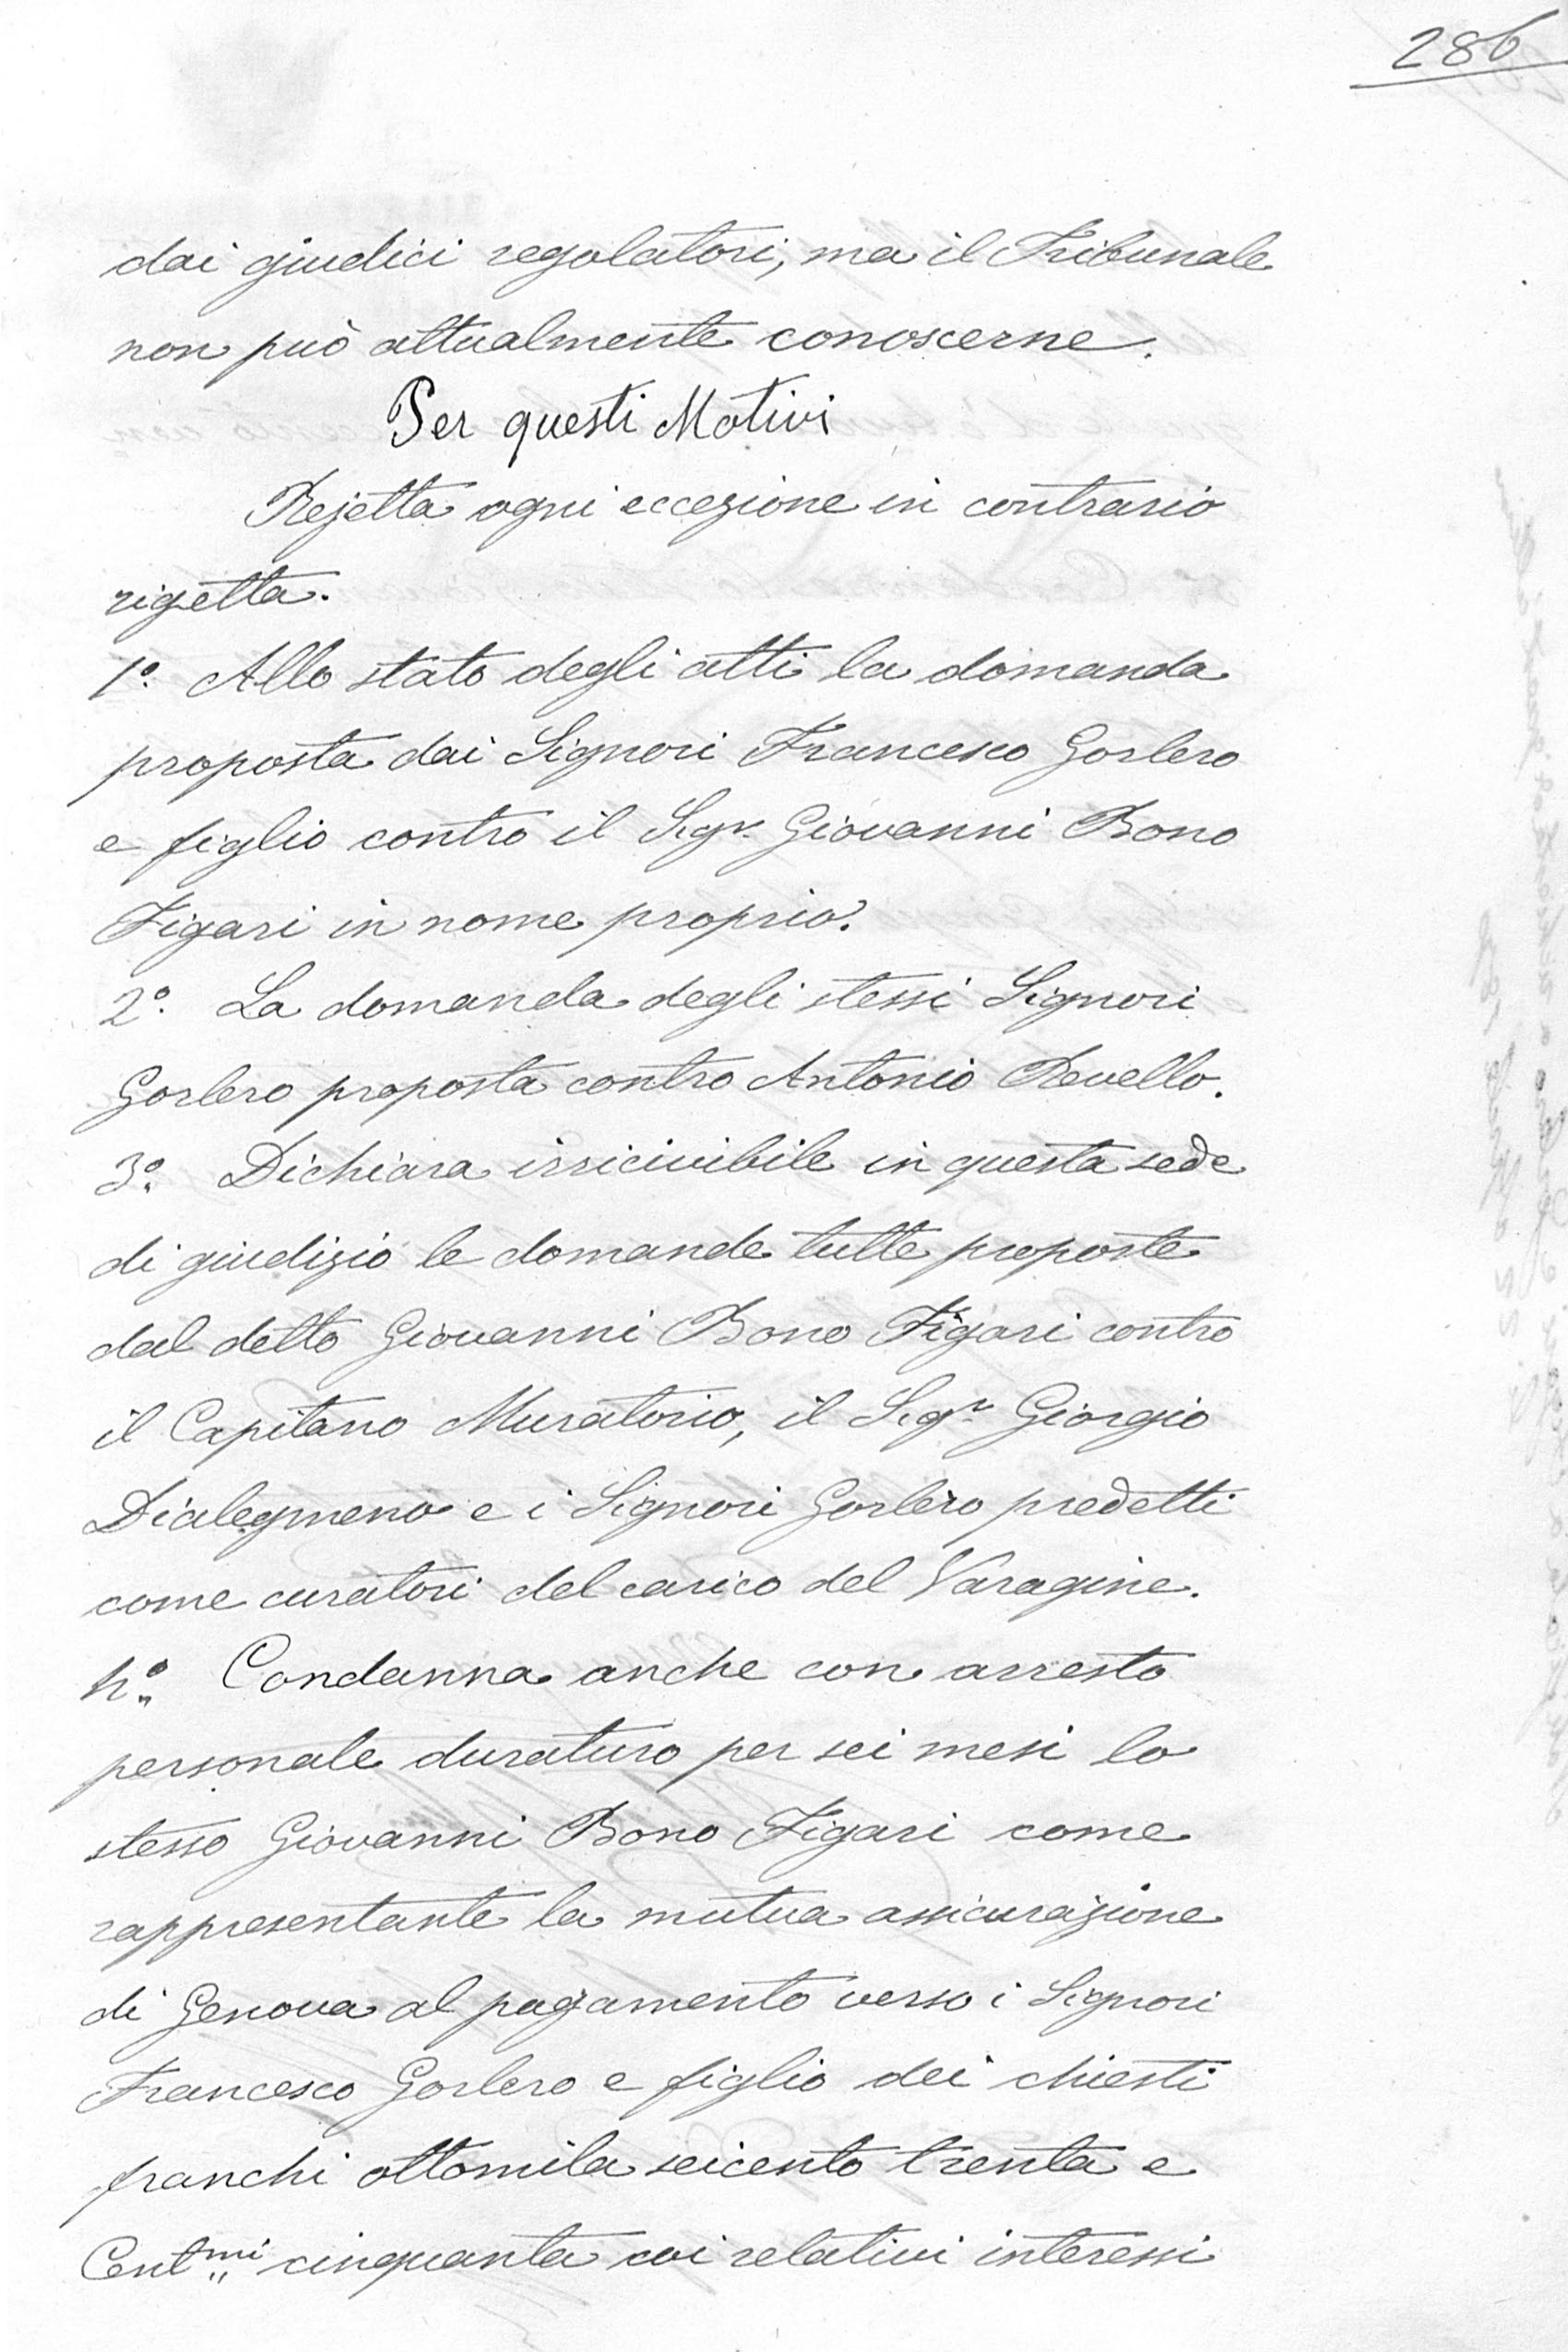 286
dai giudici regolatori, ma il Tribunale
non può attualmente conoscerne.
Per questi Motivi
Rejetta ogni eccezione in contrario
rigetta.
1.º Allo stato degli atti la domanda
proposta dai Signori Francesco Gorlero
e figlio contro il Sigr. Giovanni Bono
Figari in nome proprio.
2.º La domanda degli stessi Signori
Gorlero proposta contro Antonio Revello.
3.º Dichiara irricivibile in questa sede
di giudizio le domande tutte proposte
dal detto Giovanni Bono Figari contro
il Capitano Muratorio, il Sigr. Giorgio
Dialegmeno e i Signori Gorlero predetti
come curatori del carico del Varagine.
4.º Condanna anche con arresto
personale duraturo per sei mesi lo
stesso Giovanni Bono Figari come
rappresentante la mutua assicurazione
di Genova al pagamento verso i Signori
Francesco Gorlero e figlio dei chiesti
franchi ottomila seicento trenta e
Centmi cinquanta coi relativi interessi